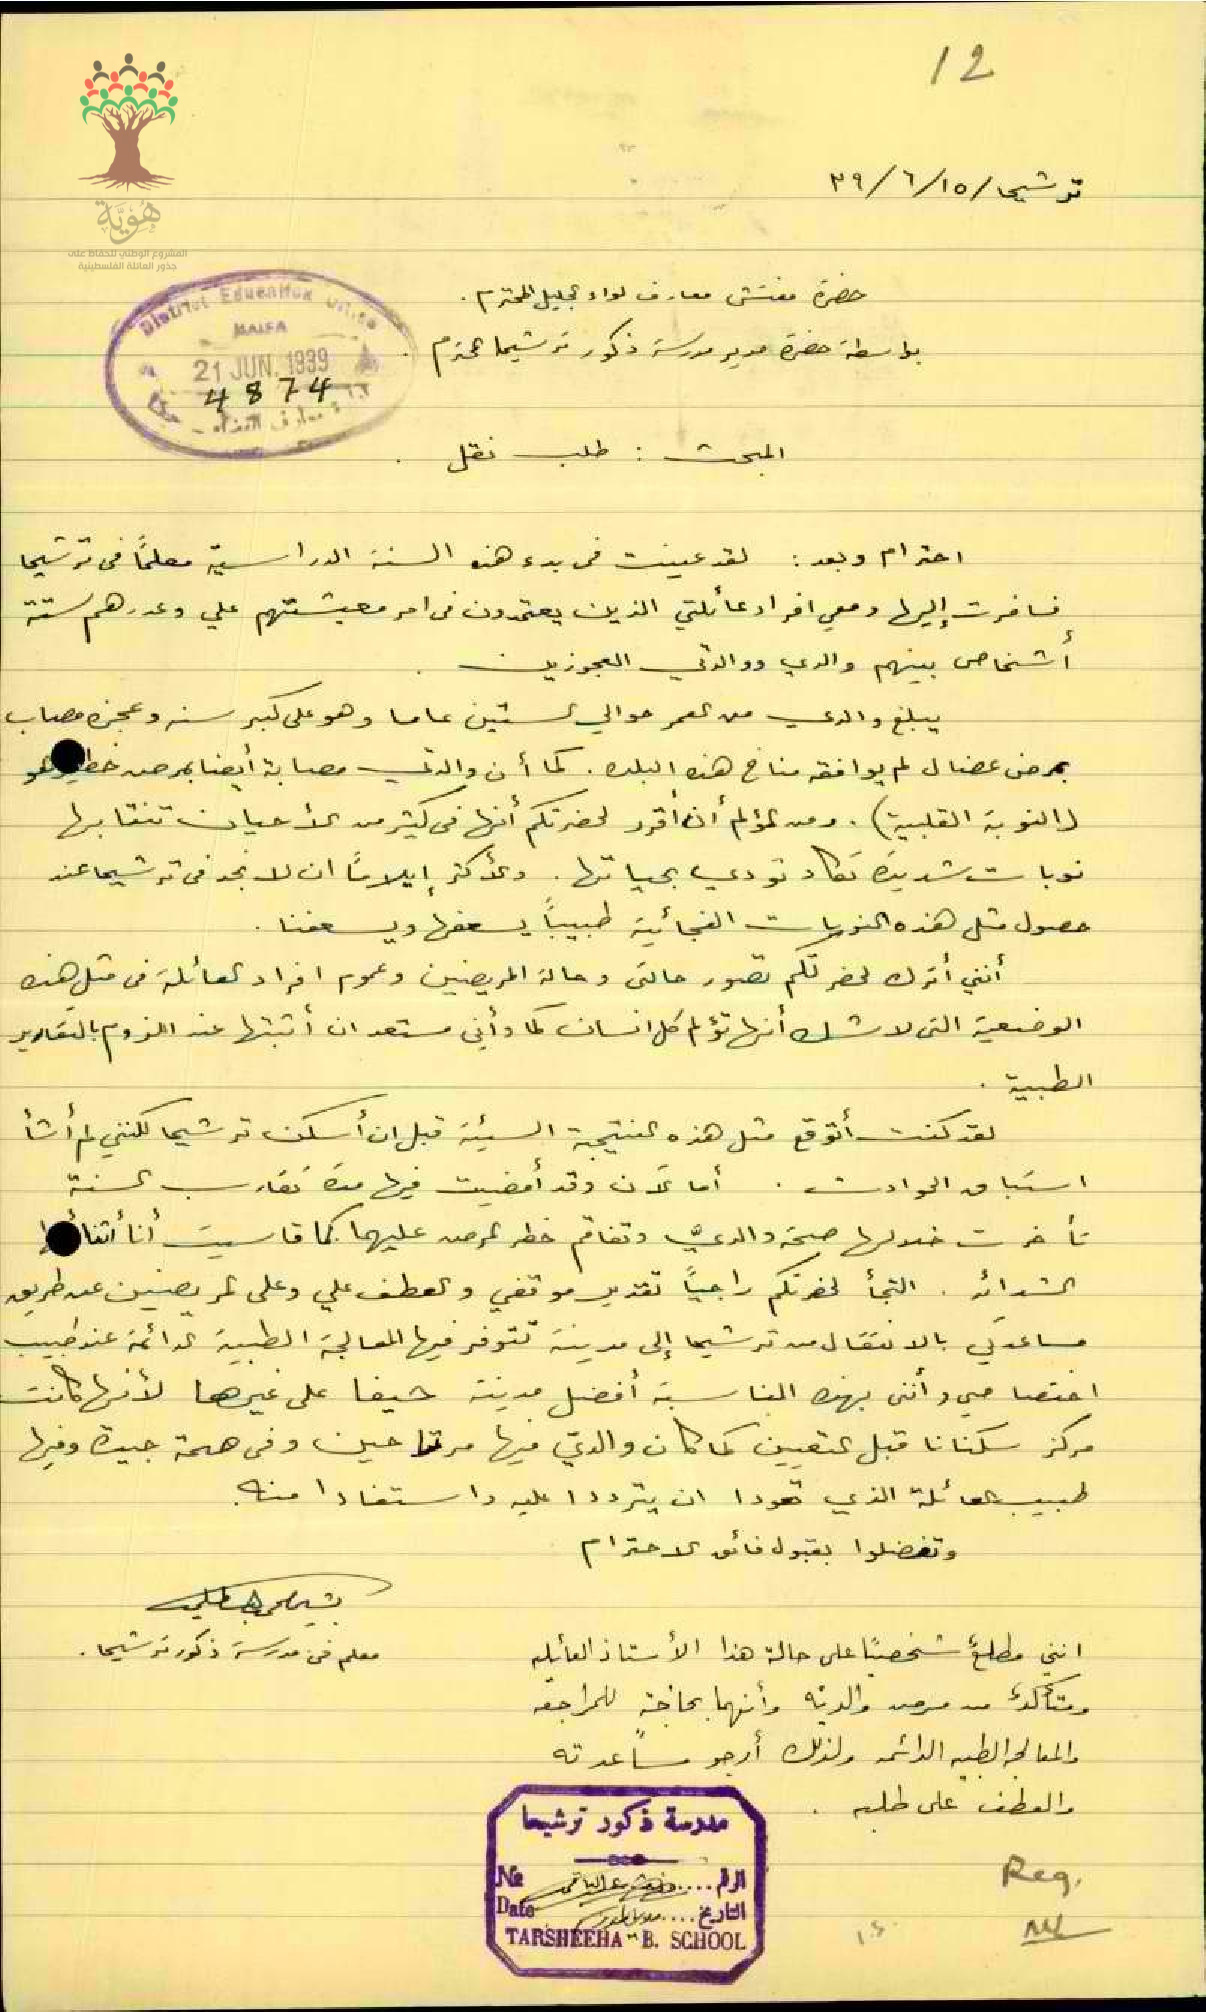 12
هُوِيَّة
المشروع الوطني للحفاظ على
جذور العائلة الفلسطينية
ترشيحا/ ١٥/ ٦/ ٣٩
حضرة مفتش معارف لواء الجليل المحترم.
بواسطة حضرة مدير مدرسة ذكور ترشيحا المحترم.
District Education Office
HAIFA
21 JUN. 1939
4874
المبحث : طلب نقل .
احترام وبعد : لقد عينت في بدء هذه السنة الدراسية معلمًا في ترشيحا
فسافرت إليها ومعي افراد عائلتي الذين يعتمدون في امر معيشتهم علي وعددهم ستة
أشخاص بينهم والدي ووالدتي العجوزين .
يبلغ والدي من العمر حوالي الستين عاما وهو على كبر سنه وعجزه مصاب
بمرض عضال لم يوافقه مناخ هذه البلده. كما أن والدتي مصابة أيضا بمرض خطير هو
(النوبة القلبية). ومن المؤلم أن أقرر لحضرتكم أنها في كثير من الأحيان تنتابها
نوبات شديدة تكاد تودي بحياتها. والأكثر إيلامًا ان لا نجد في ترشيحا عند
حصول مثل هذه النوبات الفجائية طبيبًا يسعفها ويسعفنا .
أنني أترك لحضرتكم تصور حالتي وحالة المريضين وعموم افراد العائلة في مثل هذه
الوضعية التي لا شك أنها تؤلم كل انسان كما وأني مستعد ان أثبتها عند اللزوم بالتقارير
الطبية .
لقد كنت أتوقع مثل هذه النتيجة السيئة قبل ان أسكن ترشيحا لكنني لم أشأ
استباق الحوادث . أما الآن وقد أمضيت فيها مدة تقارب السنة
تأخرت خلالها صحة والديّ وتفاقم خطر المرض عليهما كما قاسيت أنا أثناءها
الشدائد . التجأ لحضرتكم راجيًا تقدير موقفي والعطف علي وعلى المريضين عن طريق
مساعدتي بالانتقال من ترشيحا إلى مدينة تتوفر فيها المعالجة الطبية الدائمة عند طبيب
اختصاصي وأنني بهذه المناسبة أفضل مدينة حيفا على غيرها لأنها كانت
مركز سكنانا قبل التعيين كما كان والديّ فيها مرتاحين وفي صحة جيدة وفيها
طبيب العائلة الذي تعودا ان يترددا عليه واستفادا منه.
وتفضلوا بقبول فائق الاحترام
معلم في مدرسة ذكور ترشيحا.
انني مطلعٌ شخصيًا على حالة هذا الأستاذ العائليه
ومتأكدٌ من مرض والديْه وأنهما بحاجةٍ للمراجعه
والمعالجة الطبيه الدائمه ولذلك أرجو مساعدته
والعطف على طلبه .
مدرسة ذكور ترشيحا
№ الرقم
Date التاريخ
TARSHEEHA B. SCHOOL
Reg.